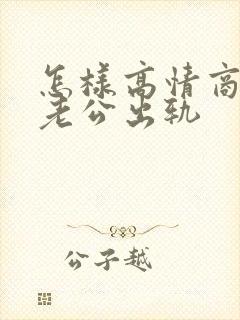 怎樣高情商
老公出軌
公子越